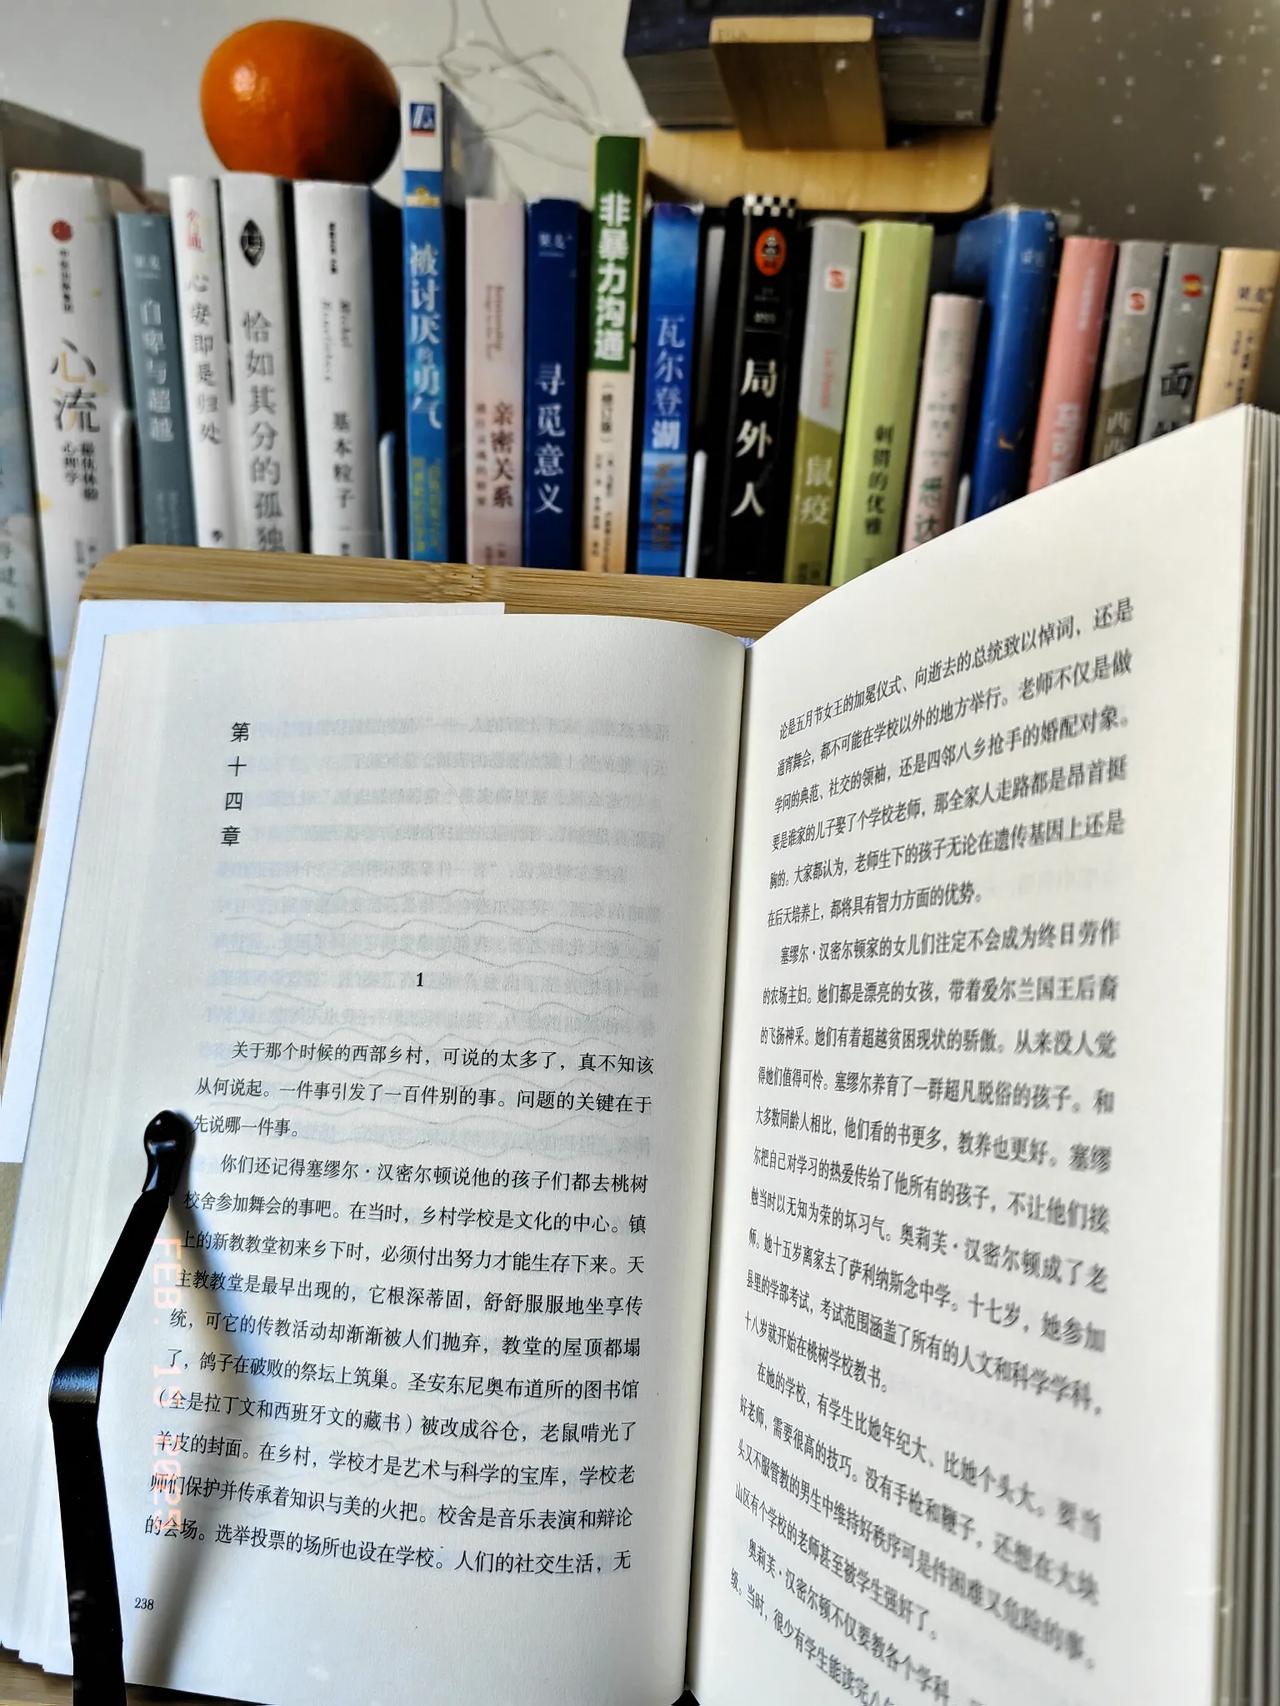 心流
最优体验心理学
自卑与超越
心安即是归处
恰如其分的孤独
基本粒子
被讨厌的勇气
亲密关系
寻觅意义
非暴力沟通
(修订版)
瓦尔登湖
局外人
鼠疫
刺猬的优雅
第十四章
1
关于那个时候的西部乡村，可说的太多了，真不知该
从何说起。一件事引发了一百件别的事。问题的关键在于
先说哪一件事。
你们还记得塞缪尔·汉密尔顿说他的孩子们都去桃树
校舍参加舞会的事吧。在当时，乡村学校是文化的中心。镇
上的新教教堂初来乡下时，必须付出努力才能生存下来。天
主教教堂是最早出现的，它根深蒂固，舒舒服服地坐享传
统，可它的传教活动却渐渐被人们抛弃，教堂的屋顶都塌
了，鸽子在破败的祭坛上筑巢。圣安东尼奥布道所的图书馆
（全是拉丁文和西班牙文的藏书）被改成谷仓，老鼠啃光了
羊皮的封面。在乡村，学校才是艺术与科学的宝库，学校老
师们保护并传承着知识与美的火把。校舍是音乐表演和辩论
的会场。选举投票的场所也设在学校。人们的社交生活，无
238
论是五月节女王的加冕仪式、向逝去的总统致以悼词，还是
通宵舞会，都不可能在学校以外的地方举行。老师不仅是做
学问的典范、社交的领袖，还是四邻八乡抢手的婚配对象。
要是谁家的儿子娶了个学校老师，那全家人走路都是昂首挺
胸的。大家都认为，老师生下的孩子无论在遗传基因上还是
在后天培养上，都将具有智力方面的优势。
塞缪尔·汉密尔顿家的女儿们注定不会成为终日劳作
的农场主妇。她们都是漂亮的女孩，带着爱尔兰国王后裔
的飞扬神采。她们有着超越贫困现状的骄傲。从来没人觉
得她们值得可怜。塞缪尔养育了一群超凡脱俗的孩子。和
大多数同龄人相比，他们看的书更多，教养也更好。塞缪
尔把自己对学习的热爱传给了他所有的孩子，不让他们接
触当时以无知为荣的坏习气。奥莉芙·汉密尔顿成了老
师。她十五岁离家去了萨利纳斯念中学。十七岁，她参加
县里的学部考试，考试范围涵盖了所有的人文和科学学科，
十八岁就开始在桃树学校教书。
在她的学校，有学生比她年纪大、比她个头大。要当
好老师，需要很高的技巧。没有手枪和鞭子，还想在大块
头又不服管教的男生中维持好秩序可是件困难又危险的事。
山区有个学校的老师甚至被学生强奸了。
奥莉芙·汉密尔顿不仅要教各个学科，
级。当时，很少有学生能读完八